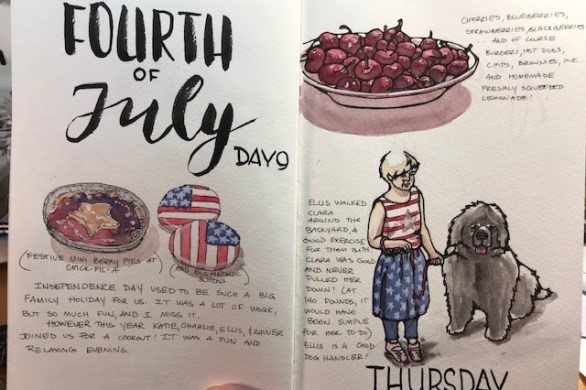 FOURTH
OF
July
DAY 9
(FESTIVE MINI BERRY PIES AT
CHICK-FIL-A)
(AND BIG METALLIC
BUTTONS)
INDEPENDENCE DAY USED TO BE SUCH A BIG
FAMILY HOLIDAY FOR US. IT WAS A LOT OF WORK,
BUT SO MUCH FUN, AND I MISS IT.
HOWEVER THIS YEAR KATIE, CHARLIE, ELLIS, & RAINER
JOINED US FOR A COOKOUT! IT WAS A FUN AND
RELAXING EVENING.
CHERRIES, BLUEBERRIES,
STRAWBERRIES, BLACKBERRIES
AND OF COURSE
BURGERS, HOT DOGS,
CHIPS, BROWNIES, PIE
AND HOMEMADE
FRESHLY SQUEEZED
LEMONADE!
ELLIS WALKED
CLARA
AROUND THE
BACKYARD, A
GOOD EXERCISE
FOR THEM BOTH
CLARA WAS GOOD
AND NEVER
PULLED HER
DOWN! (AT
140 POUNDS, IT
WOULD HAVE
BEEN SIMPLE
FOR HER TO DO)
ELLIS IS A GOOD
DOG HANDLER!
THURSDAY